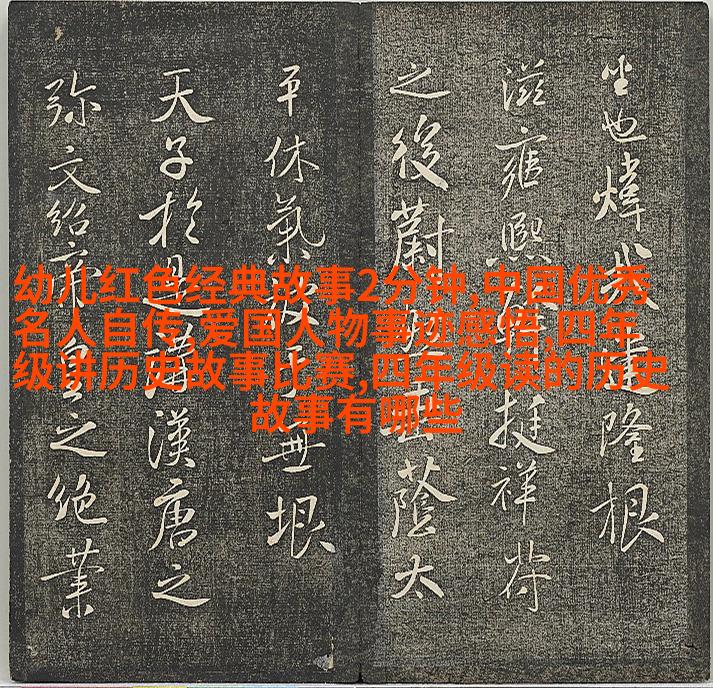 幼儿红色经典故事2分钟,中国优秀
名人自传,爱国人物事迹感悟,四年
级讲历史故事比赛,四年级读的历史
故事有哪些
也煒哉隆根
滋雍熙挺祥符
之後蔚蔭太
平休氣無垠
天子於講漢唐之
弥文紹帝之絶業